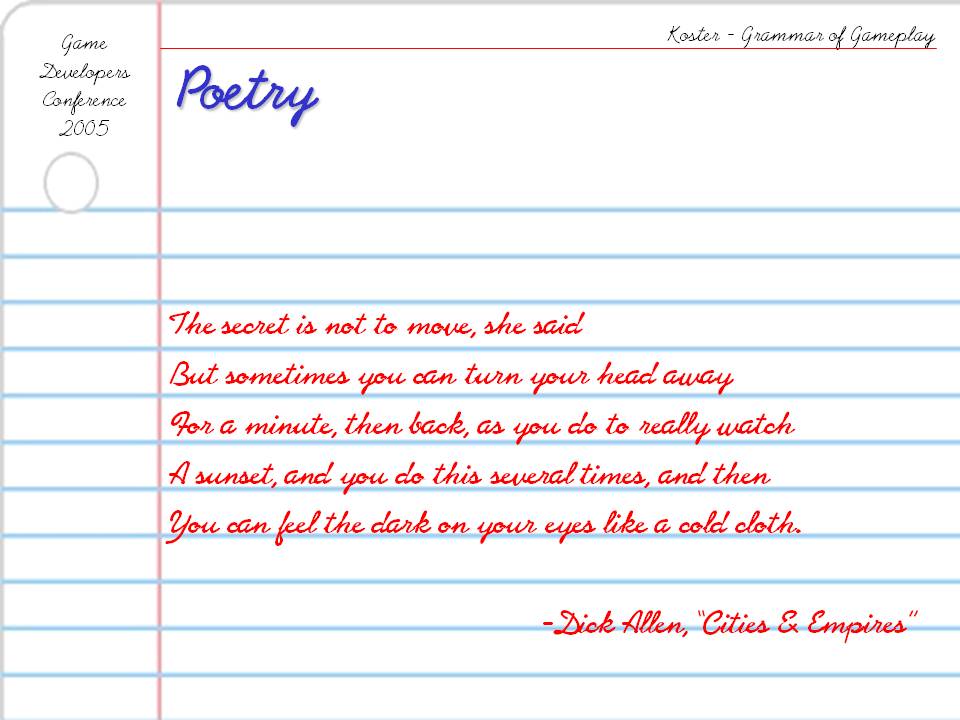 Game
Developers
Conference
2005
Koster - Grammar of Gameplay
Poetry
The secret is not to move, she said
But sometimes you can turn your head away
For a minute, then back, as you do to really watch
A sunset, and you do this several times, and then
You can feel the dark on your eyes like a cold cloth.
-Dick Allen, “Cities & Empires”